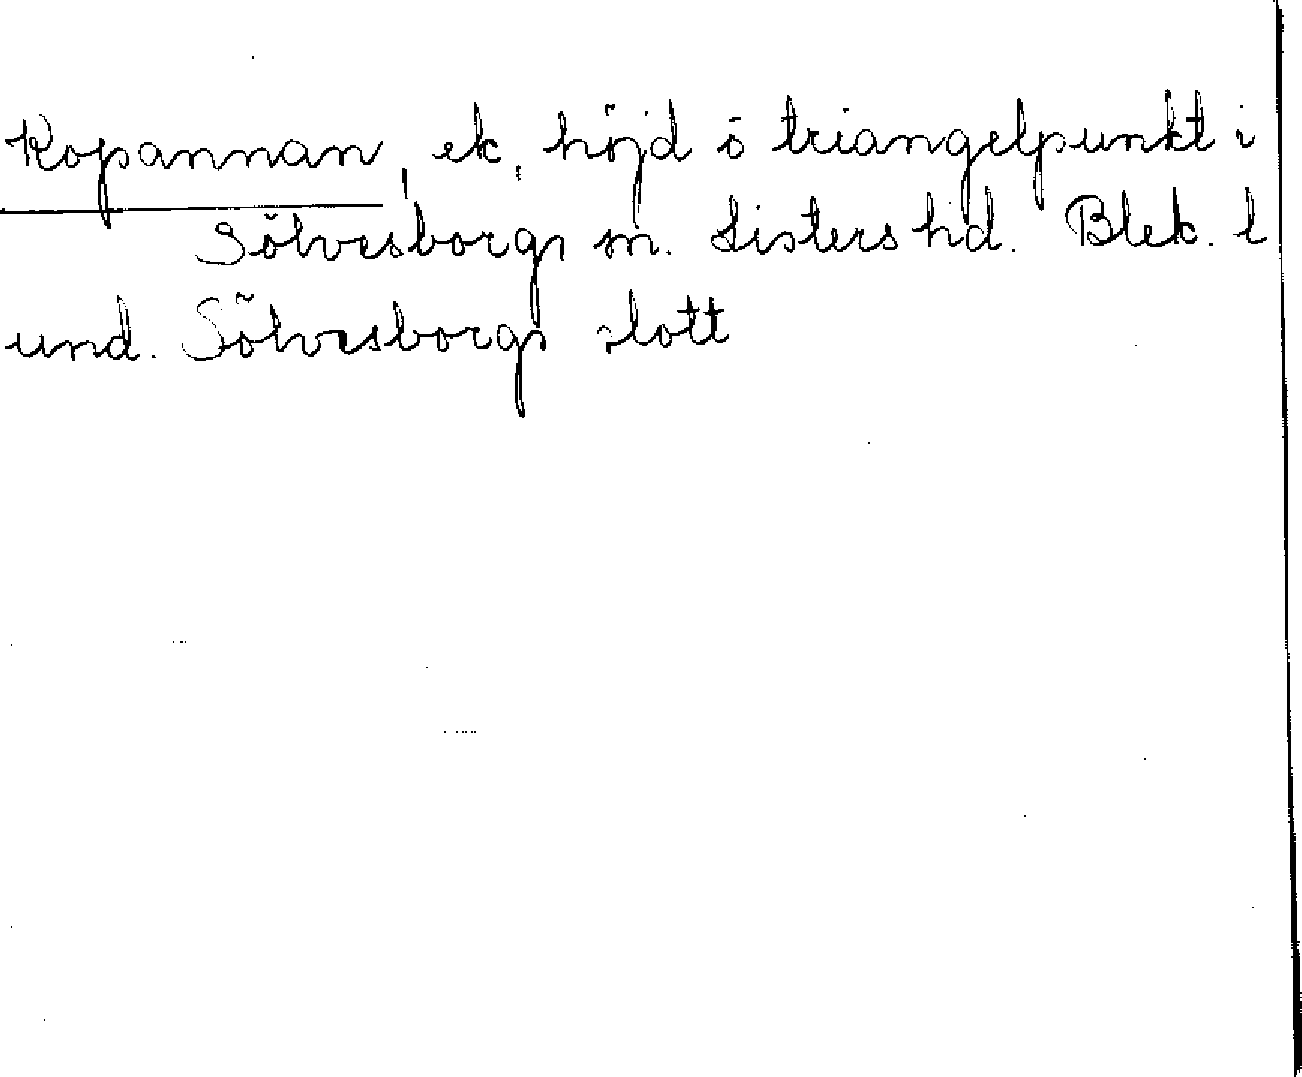 Kopannan, ek, höjd o triangelpunkt i
Sölvesborgs sn. Listers hd. Blek. l
und. Sölvesborgs slott